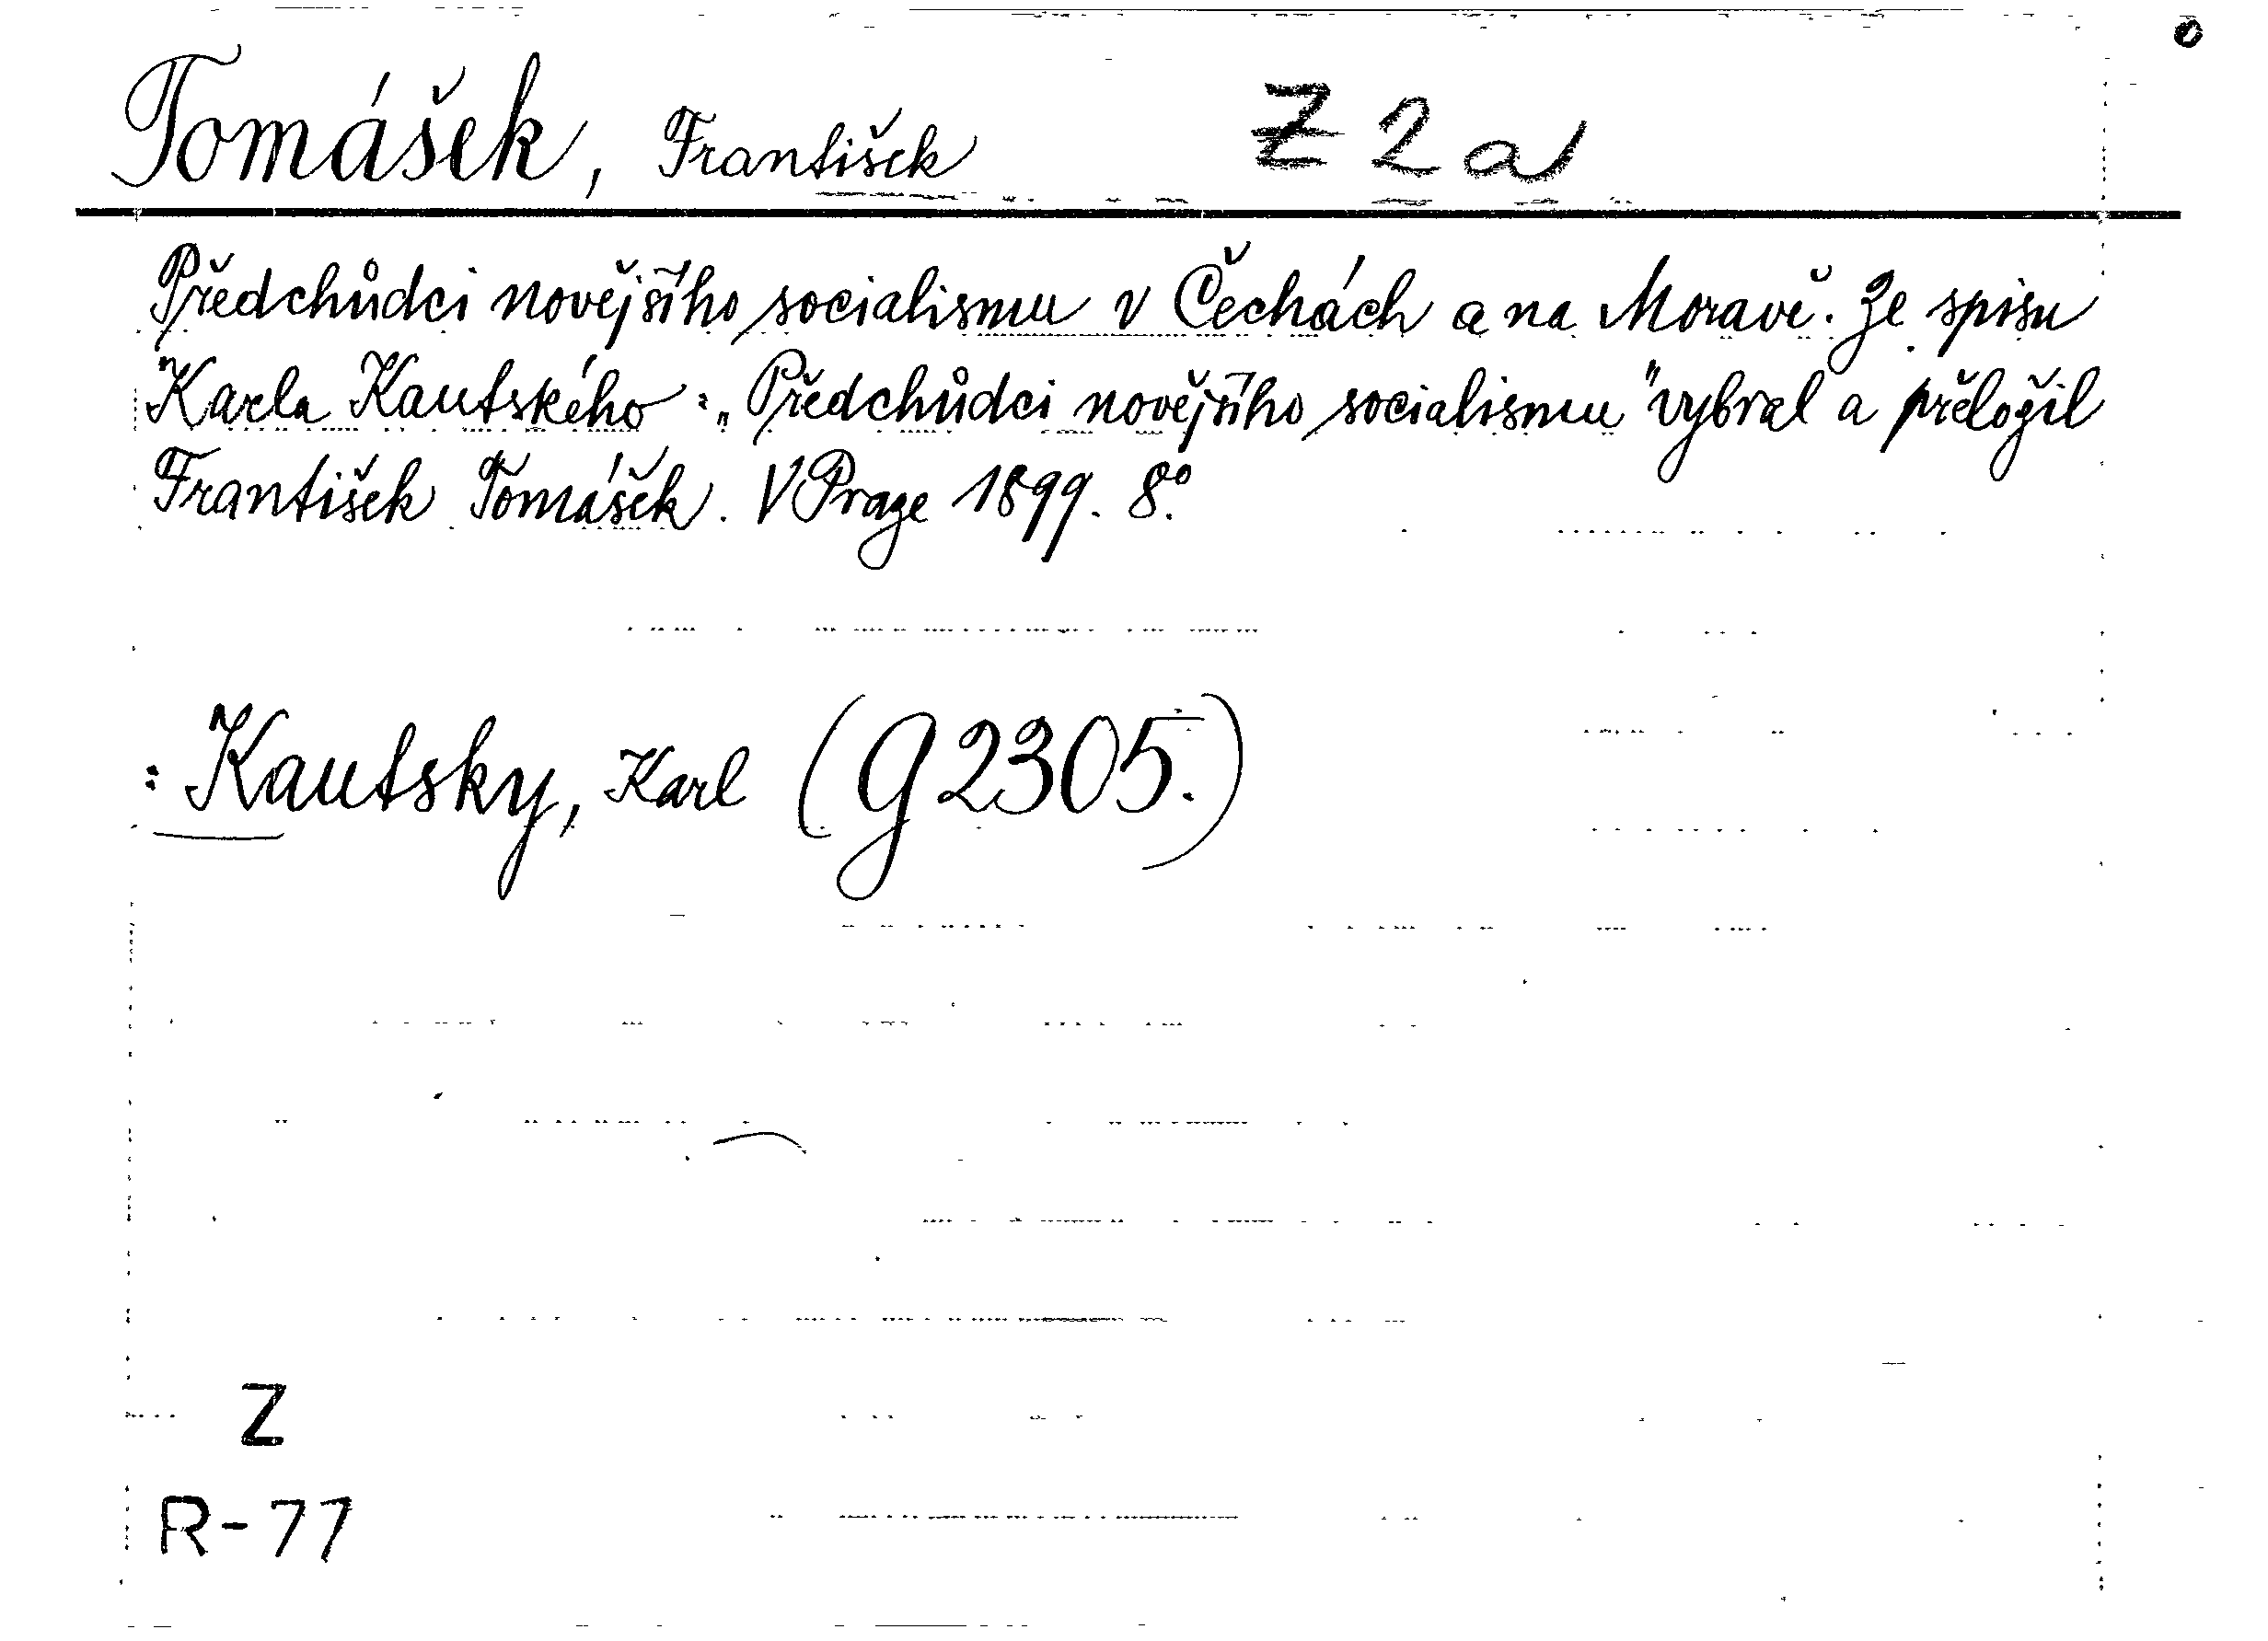 Tomášek, František Z 2 a
Předchůdci novějšího socialismu v Čechách a na Moravě. Ze spisu
Karla Kautského: „Předchůdci novějšího socialismu" vybral a přeložil
František Tomášek. V Praze 1899. 8°.
: Kautsky, Karl (G 2305.)
Z
R-77